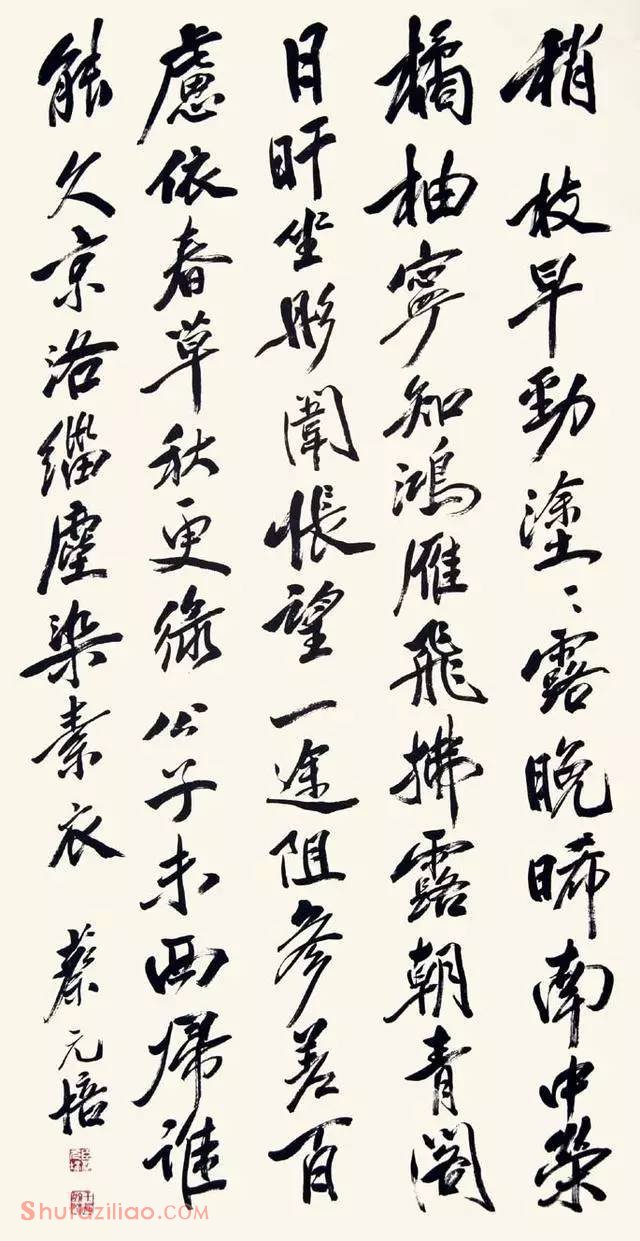 稍枝早勁塗〻露晚晞南中榮
橘柚寧知鴻雁飛拂露朝青閣
日旰坐彤闈悵望一途阻參差百
慮依春草秋更綠公子未西歸誰
能久京洛緇塵染素衣
蔡元培
Shufaziliao.com